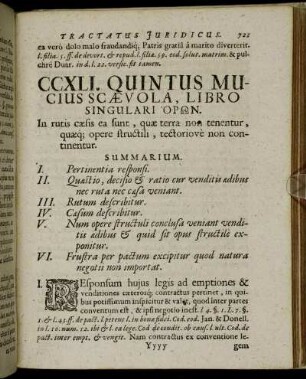 TRACTATUS JURIDICUS. 721
ea verò dolo malo fraudandiq; Patris gratiâ à marito diverterit.
l. filia. 5. ff. de divort. & repud. l. filia. 59. eod. solut. matrim. & pul-
chrè Duar. in d. l. 22. versic. sit tamen.
CCXLI. QUINTUS MU-
CIUS SCÆVOLA, LIBRO
SINGULARI ὉΡΩΝ.
In rutis cæsis ea sunt, quæ terra non tenentur,
quæq; opere structili, tectoriove non con-
tinentur.
SUMMARIUM.
I. Pertinentia responsi.
II. Quæstio, decisio & ratio cur venditis ædibus
nec ruta nec cæsa veniant.
III. Rutum describitur.
IV. Casum describitur.
V. Num opere structuli conclusa veniant vendi-
tis ædibus & quid sit opus structile ex-
ponitur.
VI. Frustra per pactum excipitur quod natura
negotii non importat.
I. REsponsum hujus legis ad emptiones &
venditiones exteriorq; contractus pertinet, in qui-
bus potissimum inspicitur & valet, quod inter partes
conventum est, & ipsi negotio inest. l. 4. §. 1. l. 7. §.
5. & l. 45. ff. de pact. l. petens l. in bonæ fidei. Cod. eod. Jan. & Donell.
in l. 10. num. 12. ibi & l. ea lege. Cod de condit. ob caus. l. ult. Cod. de
pact. inter empt. & vengit. Nam contractus ex conventione le-
Yyyy gem